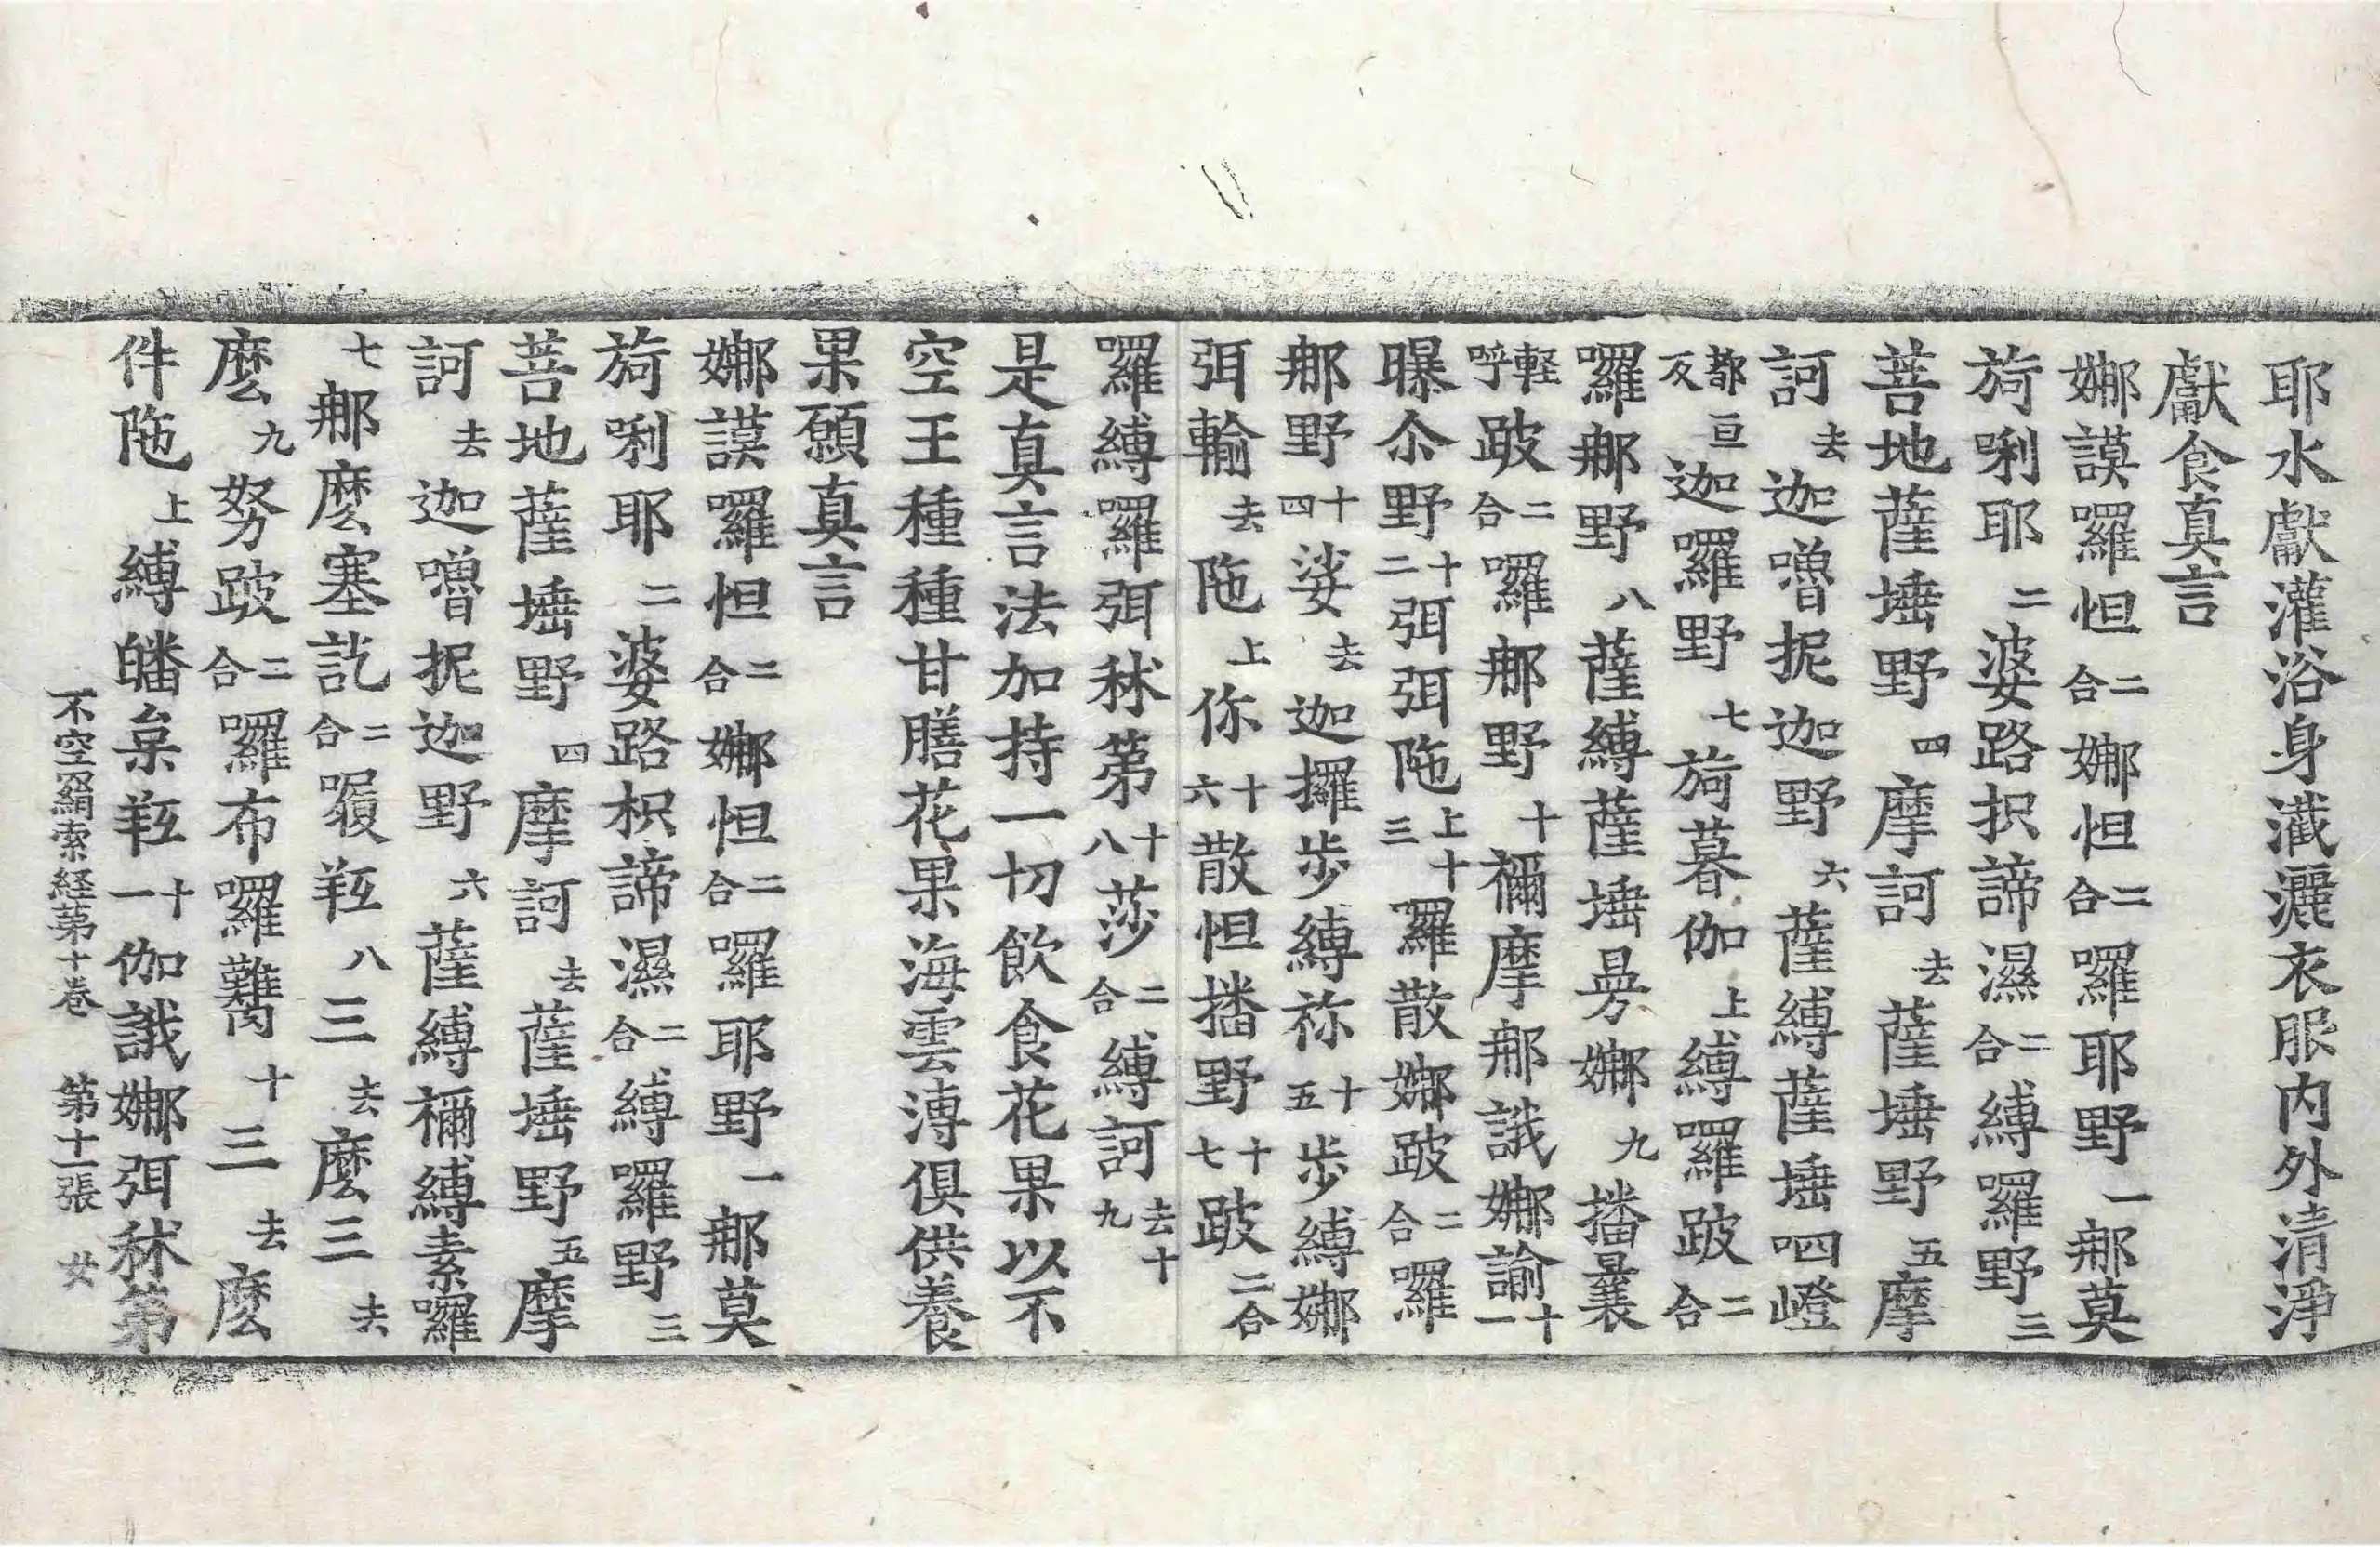 耶水獻灌浴身瀐灑衣服内外清淨
獻食真言
娜謨囉怛二合娜怛二合囉耶野一那莫
旖唎耶二婆路抧諦濕二合縛囉野三
菩地薩埵野四摩訶去薩埵野五摩
訶去迦嚕抳迦野六薩縛薩埵呬嶝
都亘反迦囉野七旖暮伽上縛囉跛二合
囉那野八薩縛薩埵曼娜九播曩
軽呼跛二合囉那野十禰摩那誐娜諭十一
曝尒野十二弭弭陁上十三囉散娜跛二合囉
那野十四娑去迦攞步縛祢十五步縛娜
弭輸去陁上你十六散怛播野十七跛二合
囉縛囉弭秫第十八莎二合縛訶去十九
是真言法加持一切飲食花果以不
空王種種甘膳花果海雲溥俱供養
果願真言
娜謨囉怛二合娜怛二合囉耶野一那莫
旖唎耶二婆路枳諦濕二合縛囉野三
菩地薩埵野四摩訶去薩埵野五摩
訶去迦嚕抳迦野六薩縛禰縛素囉
七那麼塞訖二合㗚羝八三去麼三去
麼九努跛二合囉布囉難十三去麼
件陁上縛皤枲羝十一伽誐娜弭秫第
不空羂索経第十卷　第十一張　女